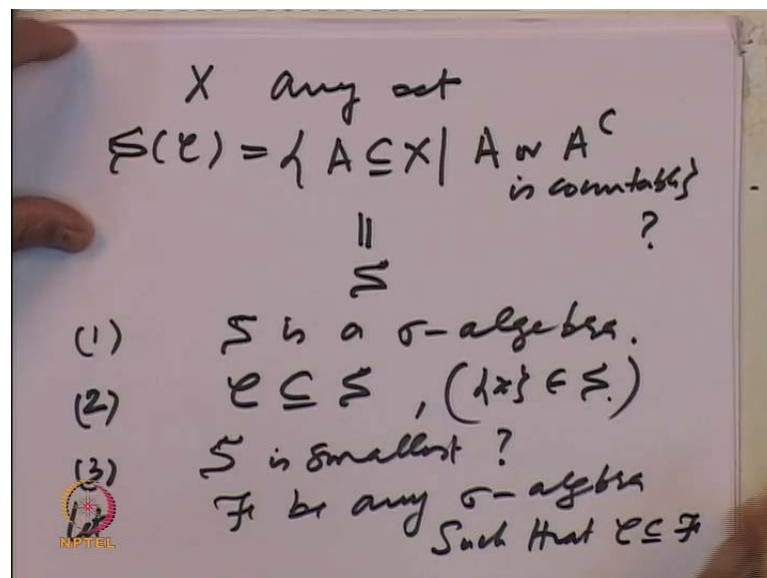 X any set
S(C) = { A ⊆ X | A or Aᶜ
is countable}
?
||
S
(1) S is a σ-algebra.
(2) C ⊆ S, ({x} ∈ S.)
(3) S is smallest ?
Let F be any σ-algebra
Such that C ⊆ F
NPTEL